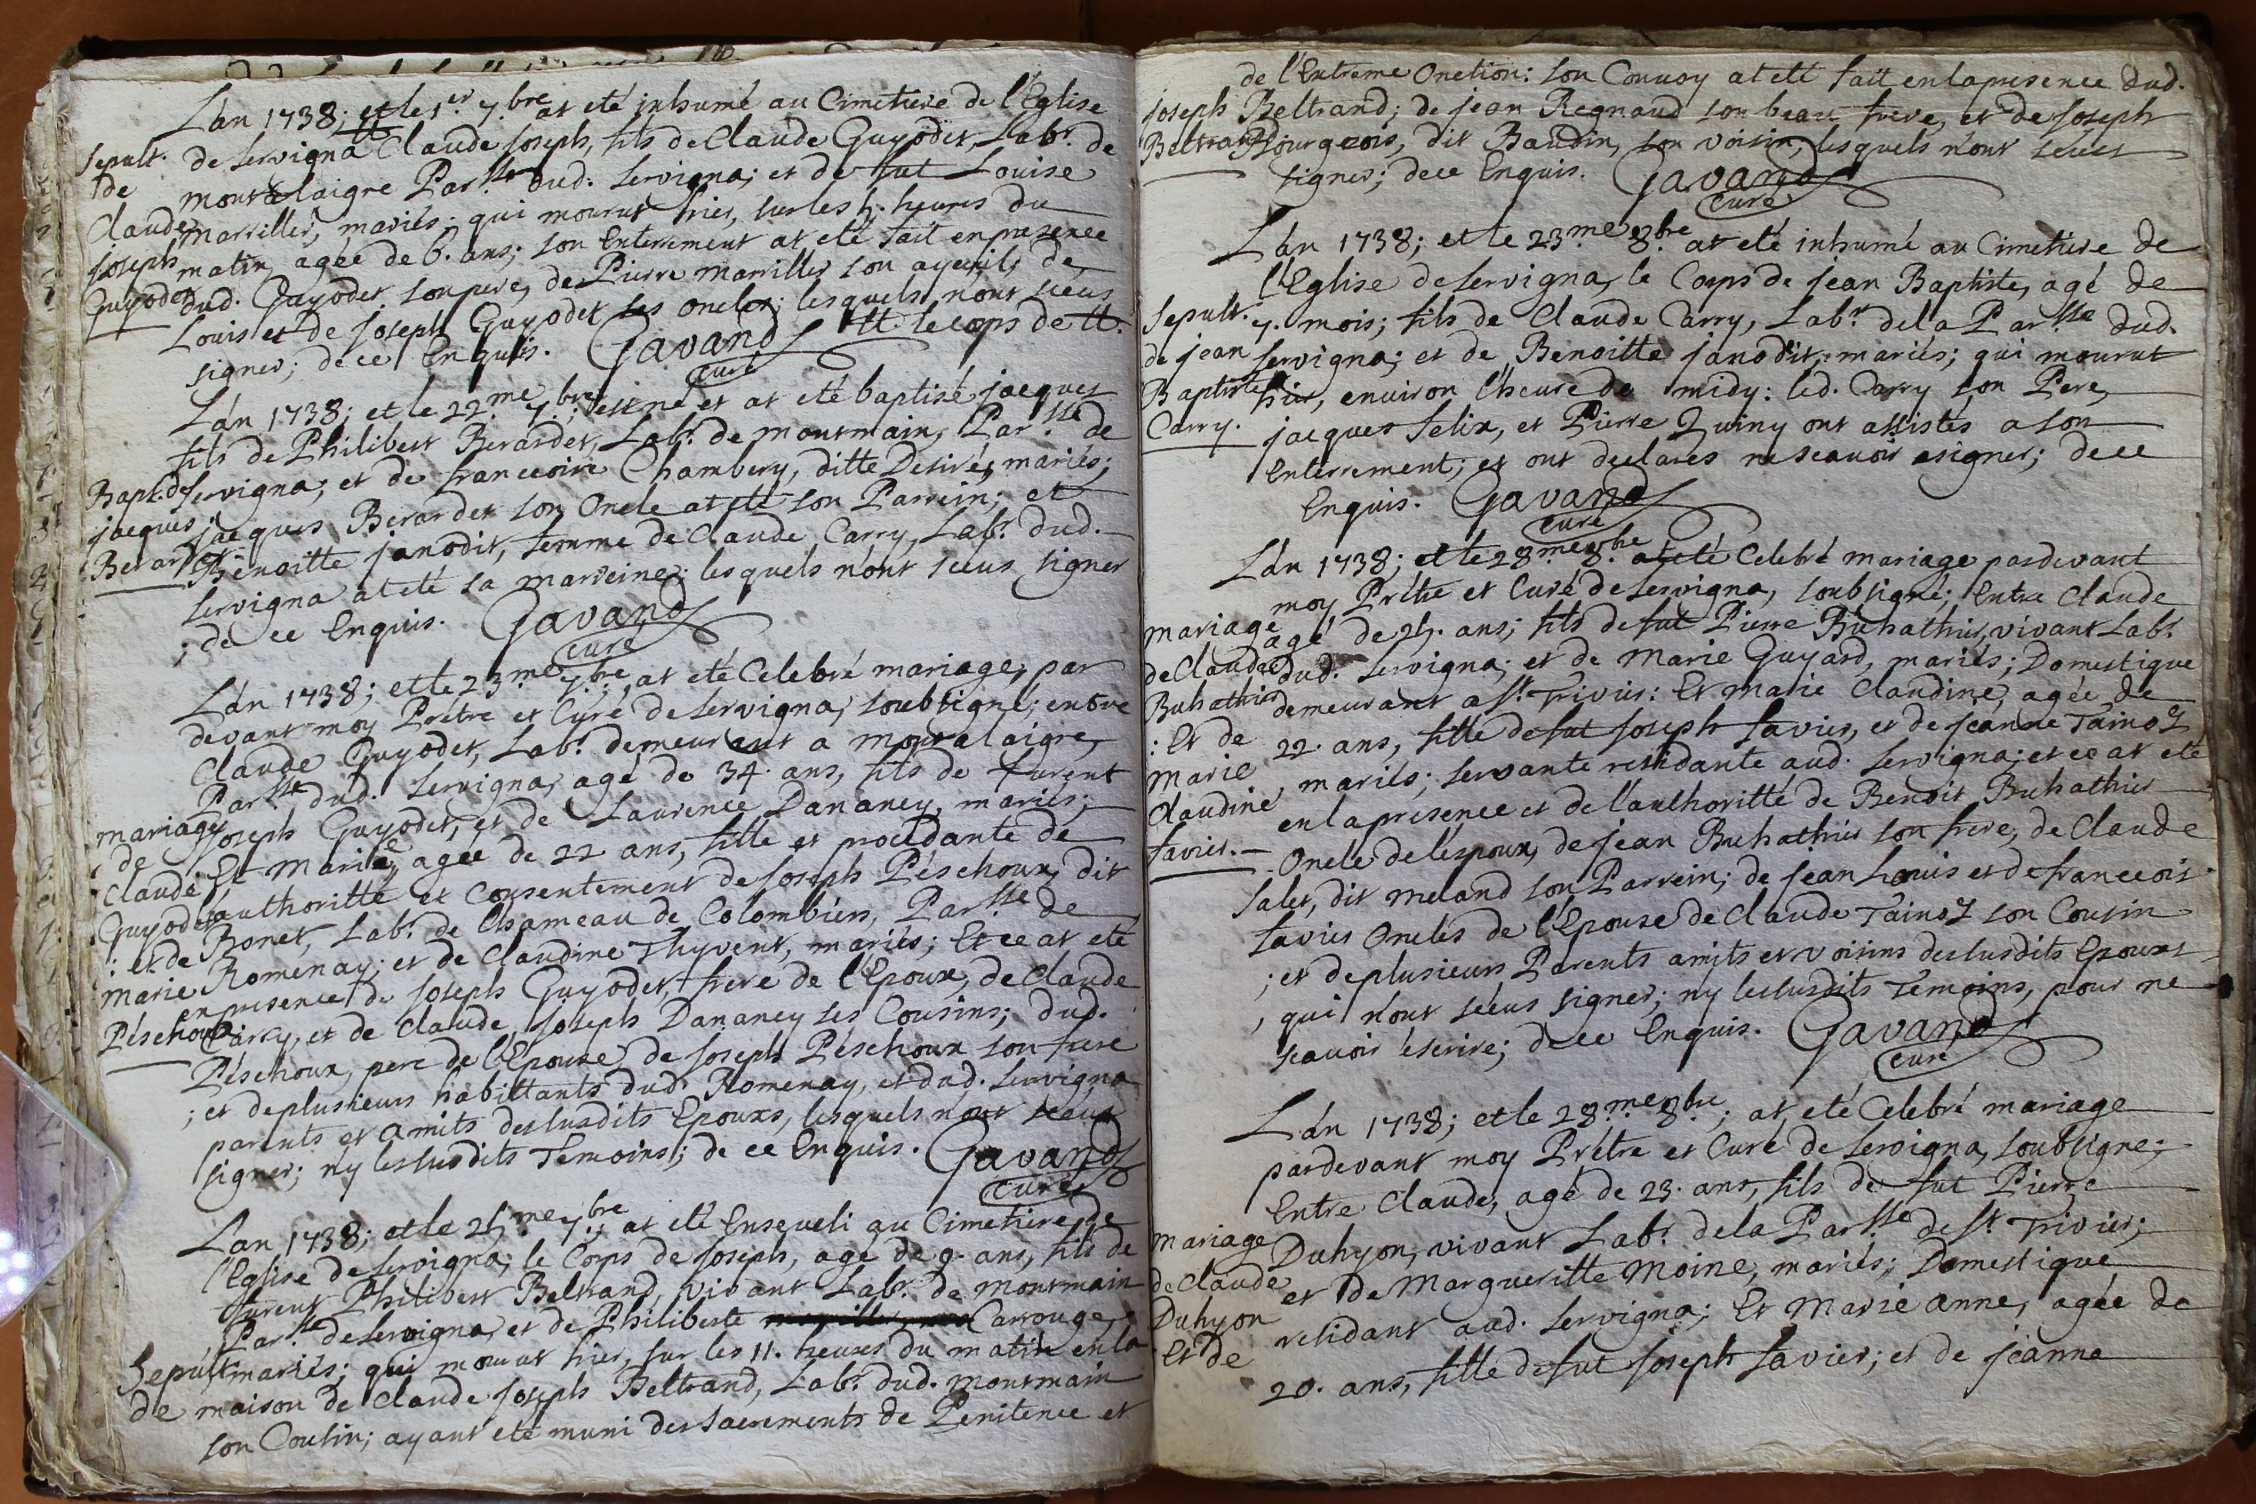 Lán 1738; et le 1.er 7.bre at eté inhumé au Cimetiere de l'Église
de Servigna tt Claude Joseph, fils de Claude Guyodet, Labr. de
montalaigre Par.sse dud. Servigna; et de fut Louise
marviller, mariés; qui mourut hier, sur les 5. heures du
matin, agée de 6. ans; son Enterrement at eté fait en presence
dud. Guyodet son pere, de Pierre marviller son ayeul, de
Louis et de Joseph Guyodet ses oncles; lesquels n'ont sceus
signer; de ce Enquis. Gavand tt. le corps de tt.
curé
Sepult.
de
Claude
Joseph
Guyodet
Lán 1738; et le 22.me 7.bre est né et at eté baptisé jacques
fils de Philibert Berardet, Labr. de montmain, Par.sse de
Servigna; et de francoise Chambery, ditte Desirée, mariés;
jacques Berardet son Oncle at eté son Parrein; et
Benoitte janodit, femme de Claude Carry, Labr. dud.
Servigna at eté sa marreine; lesquels n'ont sceus signer
; de ce Enquis. Gavand
curé
Bapt. de
jacques
Berardet
Lán 1738; et le 23.me 7.bre, at eté Celebré mariage, par
devant moy Prétre et Curé de Servigna, soubsigné; entre
Claude Guyodet, Labr. demeurant a montalaigre,
Par.sse dud. Servigna, agé de 34. ans, fils de furent
Joseph Guyodet, et de Laurence Dananey, mariés;
Et Marie, agée de 22 ans, fille et procédante de
l'authoritté et Consentement de Joseph Péschoux, dit
Bonet, Labr. de lhameau de Colombiers, Par.sse de
Romenay; et de Claudine Thyvent, mariés; Et ce at eté
en presence de Joseph Guyodet, frere de l'Epoux, de Claude
Carry, et de Claude Joseph Dananey ses Cousins; dud.
Péschoux, pere de l'Epouse, de Joseph Péschoux son frere
; et de plusieurs habittants dud. Romenay, et dud. Servigna
parents et amits des susdits Epouxs, lesquels n'ont sceus
signer; n'y les susdits Temoins; de ce Enquis. Gavand
curé
mariage
de
Claude
Guyodet
: et de
Marie
Péschoux
Lan 1738; et le 25.me 7.bre, at eté Enseveli au Cimetiere de
l'Eglise de Servigna, le Corps de Joseph, agé de 9. ans, fils de
furent Philibert Beltrand, vivant Labr. de montmain
, Par.sse de Servigna, et de Philiberte Carrouge,
mariés; qui mourut hier, sur les 11. heures du matin en la
maison de Claude Joseph Beltrand, Labr. dud. montmain
son Cousin; ayant eté muni des sacrements de Penitence et
Sepult.
de
de l'Extreme Onction: son Convoy at eté fait en la presence dud.
Joseph Beltrand; de jean Regnaud son beau frere, et de Joseph
Bourgeois, dit Baudin, son voisin; lesquels n'ont sceus
signer; de ce Enquis. Gavand
curé
Beltrand
Lán 1738; et le 23.me 8.bre at eté inhumé au Cimetiere de
l'Eglise de Servigna, le Corps de jean Baptiste, agé de
7. mois; fils de Claude Carry, Labr. de la Par.sse dud.
Servigna; et de Benoitte janodit; mariés; qui mourut
hier, environ l'heure de midy: led. Carry son Pere,
jacques Felix, et Pierre Quiny ont assistés a son
Enterrement; et ont declarés ne scavoir signer; de ce
Enquis. Gavand
curé
Sepult.
de jean
Baptiste
Carry.
Lán 1738; et le 28.me 8.bre at eté Celebré mariage pardevant
moy Prétre et Curé de Servigna, soubsigné; Entre Claude
agé de 25. ans; fils de fut Pierre Buhathier, vivant Labr.
dud. Servigna; et de Marie Guyard, mariés; Domestique
demeurant a St. Trivier: Et Marie Claudine, agée de
22. ans, fille de fut Joseph Favier, et de Jeanne Tainoz
, mariés; Servante residante aud. Servigna; et ce at eté
en la presence et de l'authoritté de Benoit Buhathier
Oncle de l'époux, de jean Buhathier son frere, de Claude
Salet, dit meland son Parrein; de jean Louis et de francois
Favier Oncles de l'Epouse, de Claude Tainoz son Cousin
; et de plusieurs Parents amits et voisins des susdits Epouxs
, qui n'ont scéus signer; ny les susdits Témoins, pour ne
scavoir éscrire; de ce Enquis. Gavand
curé
mariage
de Claude
Buhathier
: Et de
Marie
Claudine
Favier.
Lán 1738; et le 28.me 8.bre; at eté Celebré mariage
pardevant moy Prétre et Curé de Servigna, soubsigné;
Entre Claude, agé de 23. ans, fils de fut Pierre
Duhyon, vivant Labr. de la Par.sse de St. Trivier;
et de Margueritte Moine, mariés; Domestique
residant aud. Servigna; Et Marie anne, agée de
20. ans, fille de fut Joseph Favier; et de jeanne
mariage
de Claude
Duhyon
Et de